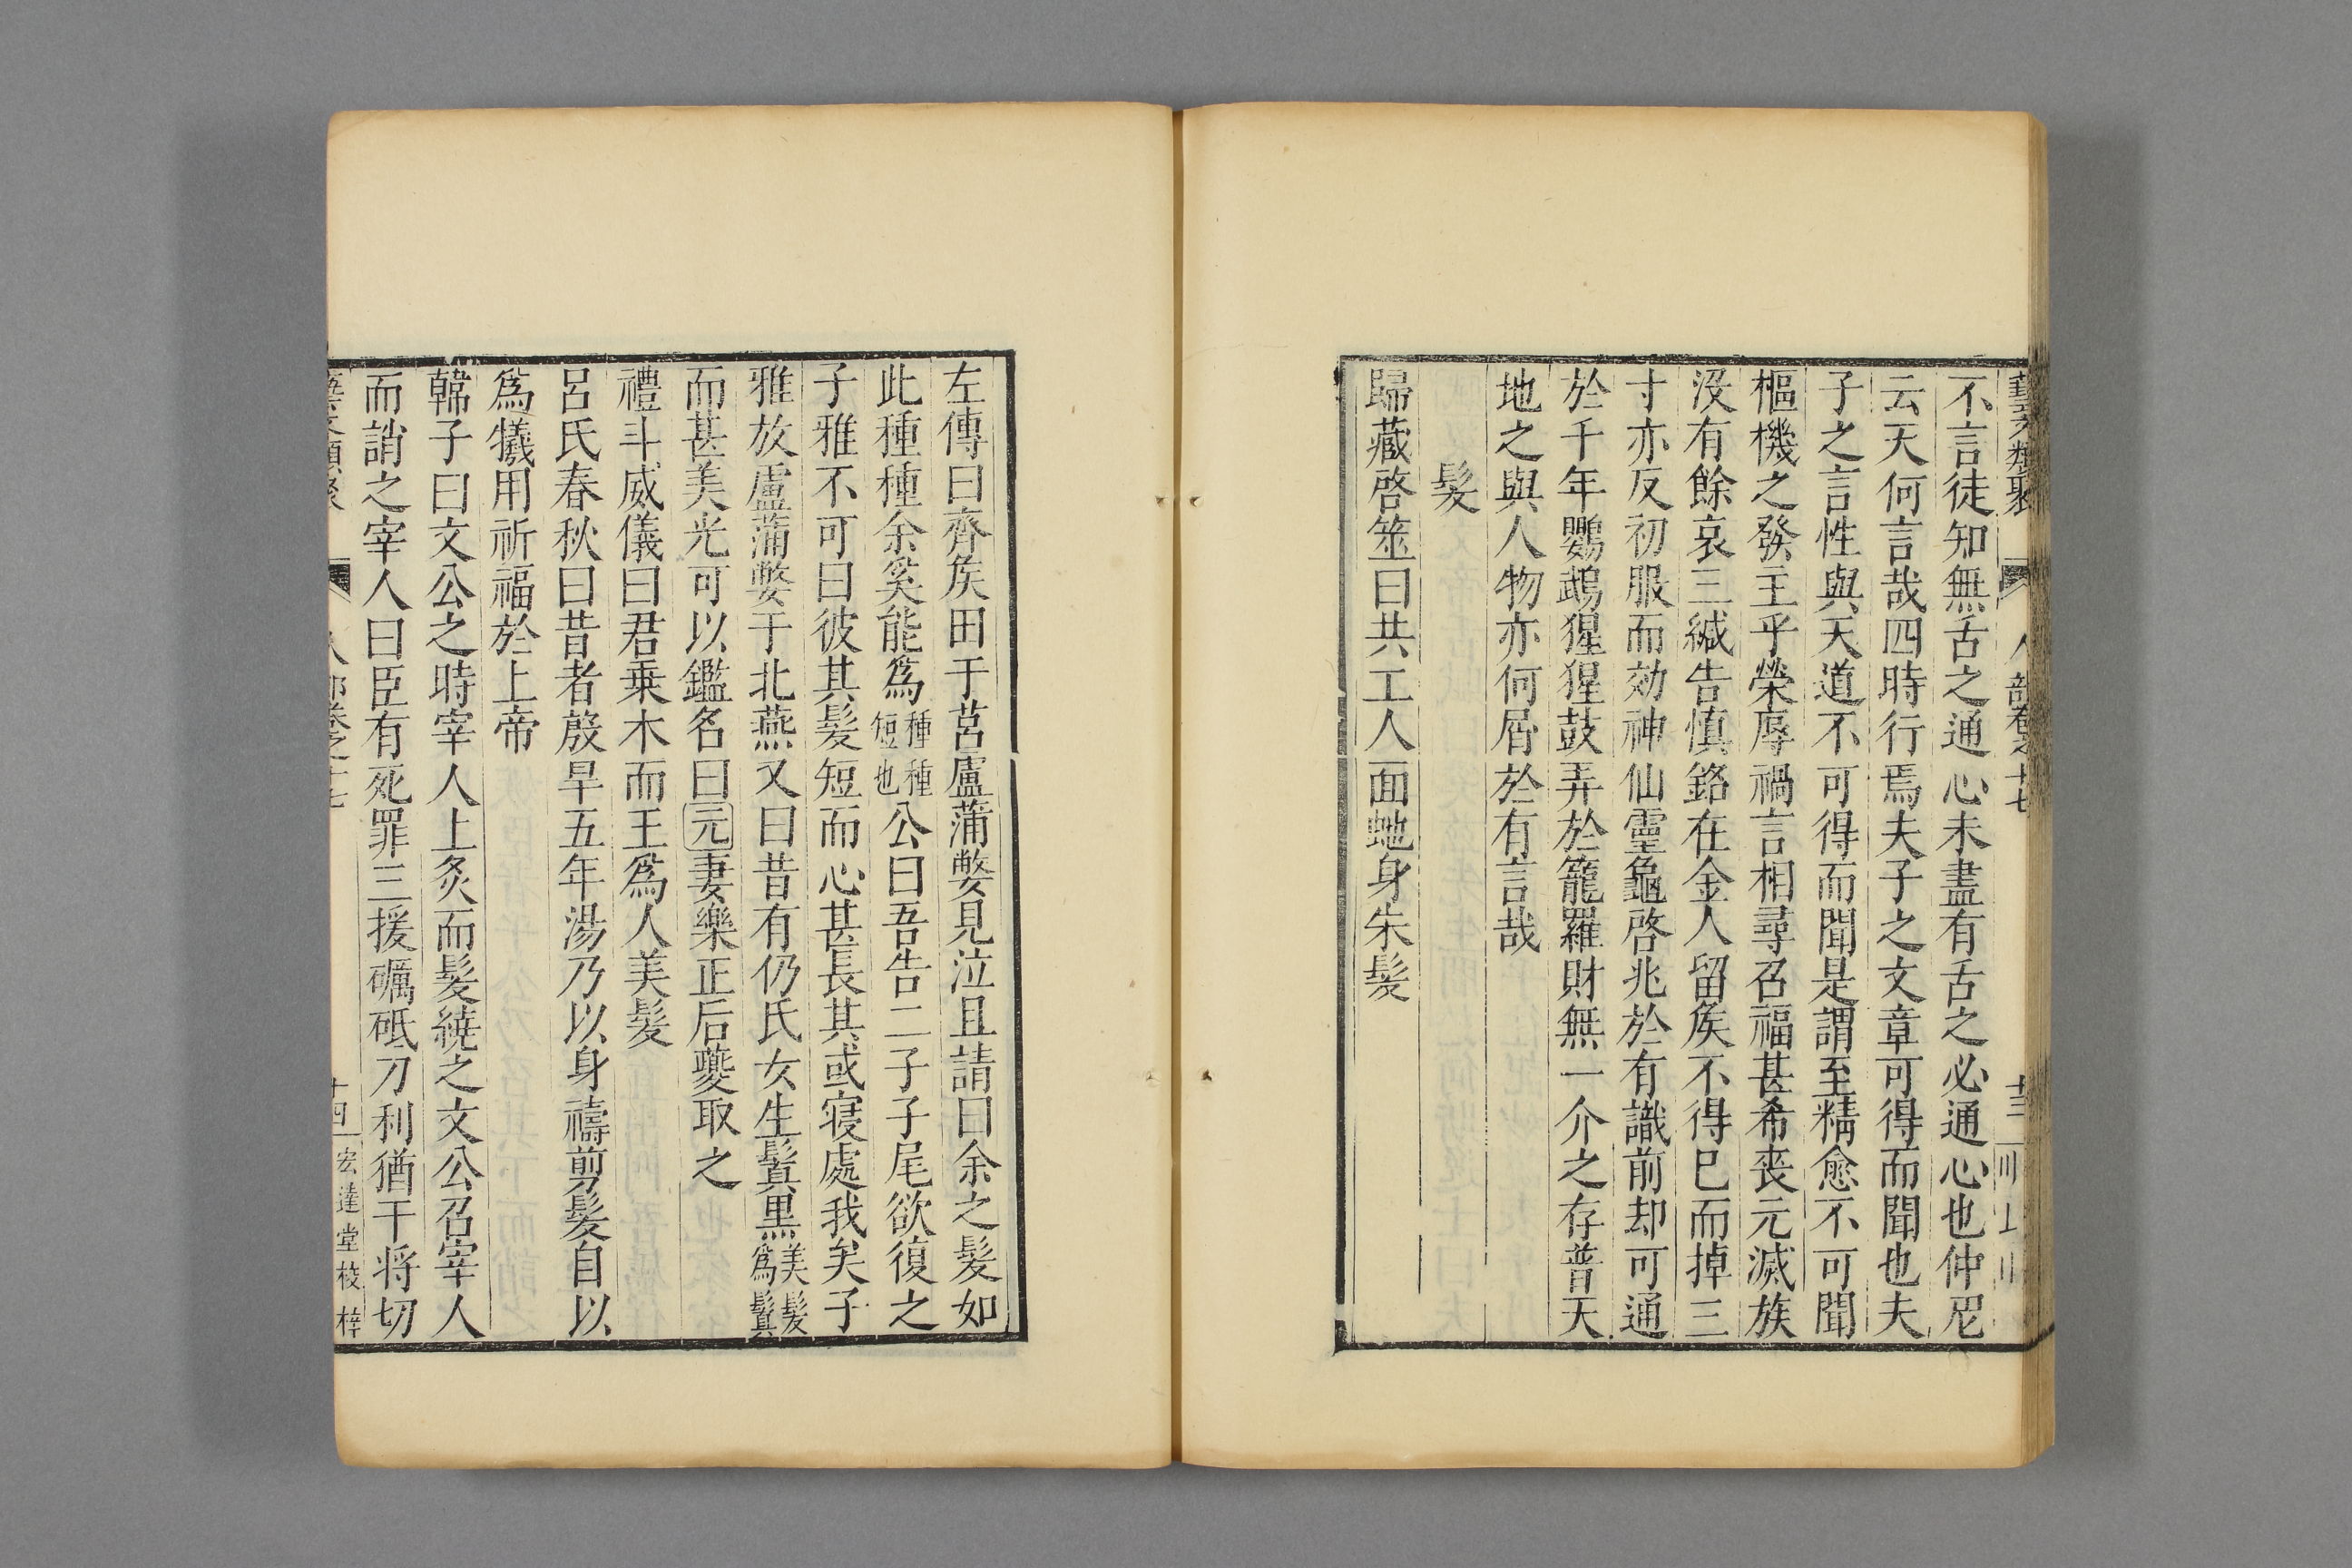 藝文類聚 人部卷之十七 十三
不言徒知無舌之通心未盡有舌之必通心也仲尼
云天何言哉四時行焉夫子之文章可得而聞也夫
子之言性與天道不可得而聞是謂至精愈不可聞
樞機之發主乎榮辱禍言相尋召福甚希喪元滅族
没有餘哀三緘告慎銘在金人留矦不得巳而掉三
寸亦反初服而効神仙靈龜啓兆於有識前却可通
於千年鸚鵡猩猩鼓弄於籠羅財無一介之存普天
地之與人物亦何屑於有言哉
髮
歸藏啓筮曰共工人面虵身朱髮
左傳曰齊矦田于莒盧蒲嫳見泣且請曰余之髮如
此種種余奚能爲種種短也公曰吾告二子子尾欲復之
子雅不可曰彼其髮短而心甚長其或寢處我矣子
雅放盧蒲嫳于北燕又曰昔有仍氏女生鬒黒美髮爲鬒
而甚美光可以鑑名曰元妻樂正后夔取之
禮斗威儀曰君乗木而王爲人美髮
呂氏春秋曰昔者殷旱五年湯乃以身禱剪髮自以
爲犧用祈福於上帝
韓子曰文公之時宰人上炙而髮繞之文公召宰人
而誚之宰人曰臣有死罪三援礪砥刀利猶干將切
藝文類聚 人部卷之十七 十四 宏達堂校梓